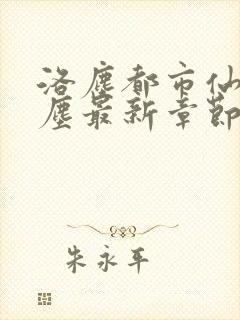 洛塵都市仙
塵最新章節
朱永平